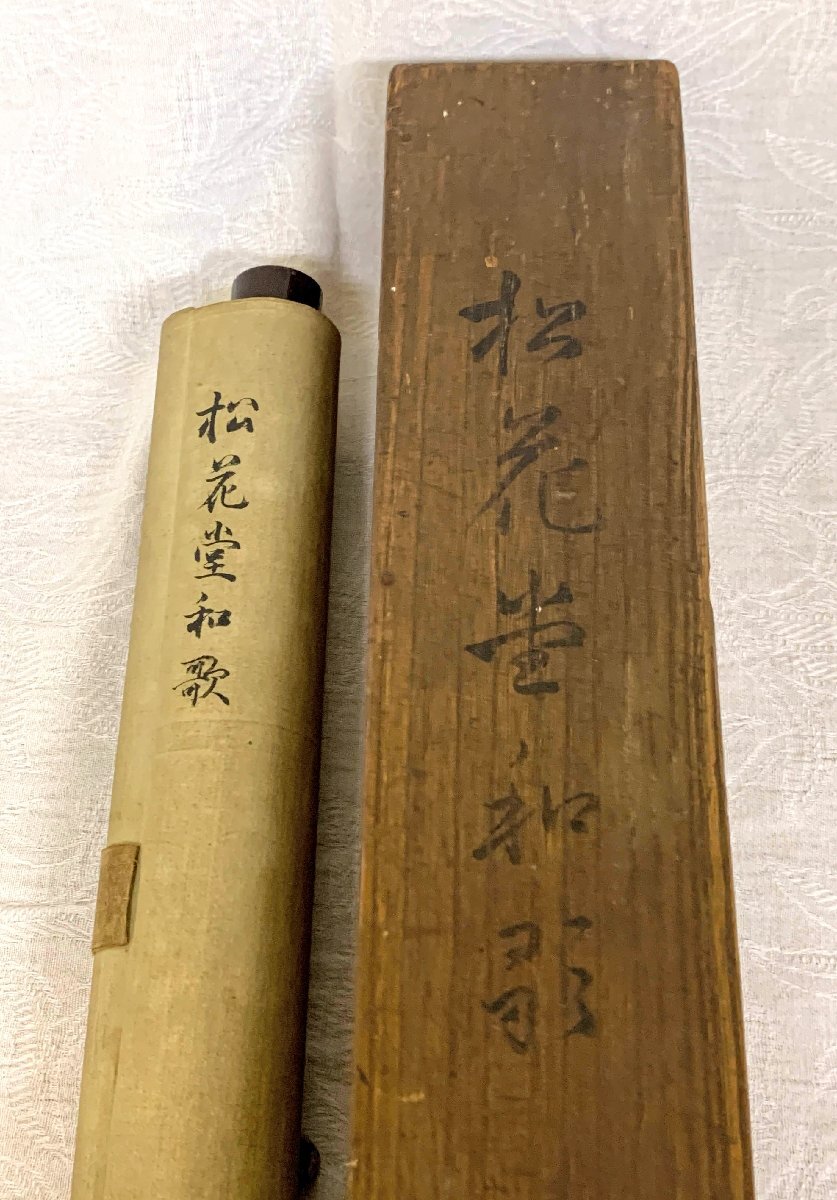 松花堂和歌
松花堂和歌